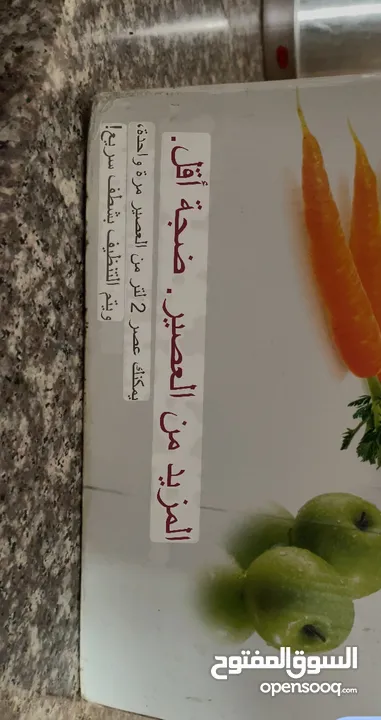 المزيد من العصير. ضجة أقل.
يمكنك عصر 2 لتر من العصير مرة واحدة،
ويتم التنظيف بشطف سريع!
السوق المفتوح
opensooq.com